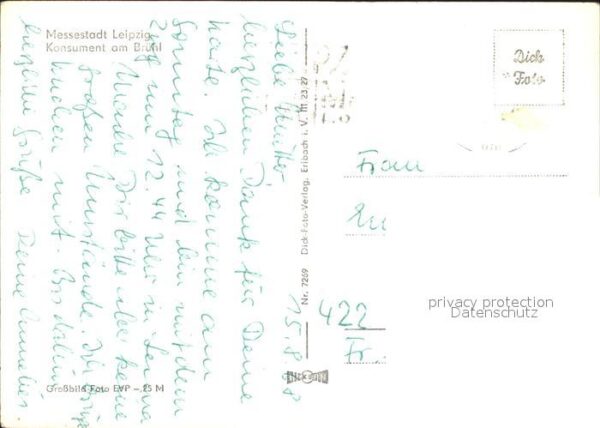 Messestadt Leipzig
Konsument am Brühl
15.8.68
Liebe Mutter
herzlichen Dank für Deine
Karte. Ich komme am
Sonntag und bin mit dem
Zug um 12.44 Uhr in
Mache Dir bitte aber keine
großen Umstände. Ich
kuchen mit. Bis dahin
herzliche Grüße Deine
Großbild-Foto EVP – 25 M
Nr. 7269 Dick-Foto-Verlag, Erlbach i. V. III 23 27
Dick
Foto
Frau
422
Fr.
privacy protection
Datenschutz